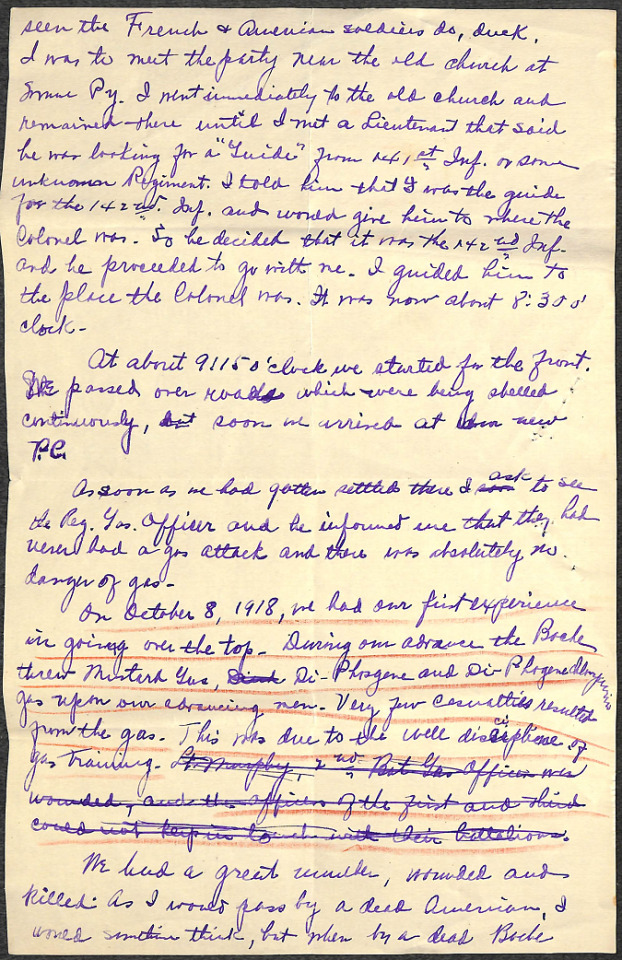 seen the French & American soldiers do, duck.
I was to meet the party near the old church at
Somme Py. I went immediately to the old church and
remained there until I met a Lieutenant that said
he was looking for a "Guide" from 141st Inf. or some
unknown Regiment. I told him that I was the guide
for the 142nd. Inf. and would give him to where the
Colonel was. So he decided that it was the 142nd Inf.
and he proceeded to go with me. I guided him to
the place the Colonel was. It was now about 8:30 o'
clock-
At about 9:15 o'clock we started for the front.
We passed over roads which were being shelled
continuously, but soon we arrived at our new
P.C.
As soon as we had gotten settled there I ask to see
the Reg. Gas. Officer and he informed me that they had
never had a gas attack and there was absolutely no
danger of gas-
On October 8, 1918, we had our first experience
in going over the top- During our advance the Boche
threw Mustard Gas, Di-Phosgene and Di-Phogene
gas upon our advancing men. Very few casualties resulted
from the gas. This was due to the well discipline of
gas training. Lt. Murphy, 2nd. Bat Gas Officer was
wounded, and the officers of the first and third
could not keep in touch with their battalions.
We had a great number, wounded and
killed. As I would pass by a dead American, I
would think, but when by a dead Boche